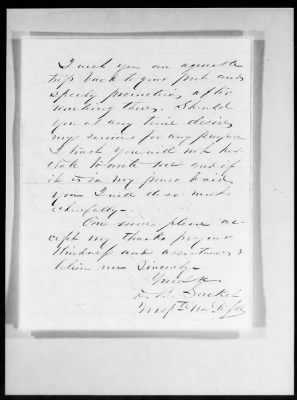 I wish you an agreeable
trip back to your post and
speedy promotion after
reaching there. Should
you at any time desire
my services for any purpose
I trust you will not hes-
itate to write me and if
it is in my power to aid
you I will do so most
cheerfully.
Once more please ac-
cept my thanks for your
kindness and assistance &
believe me Sincerely
Yours &c